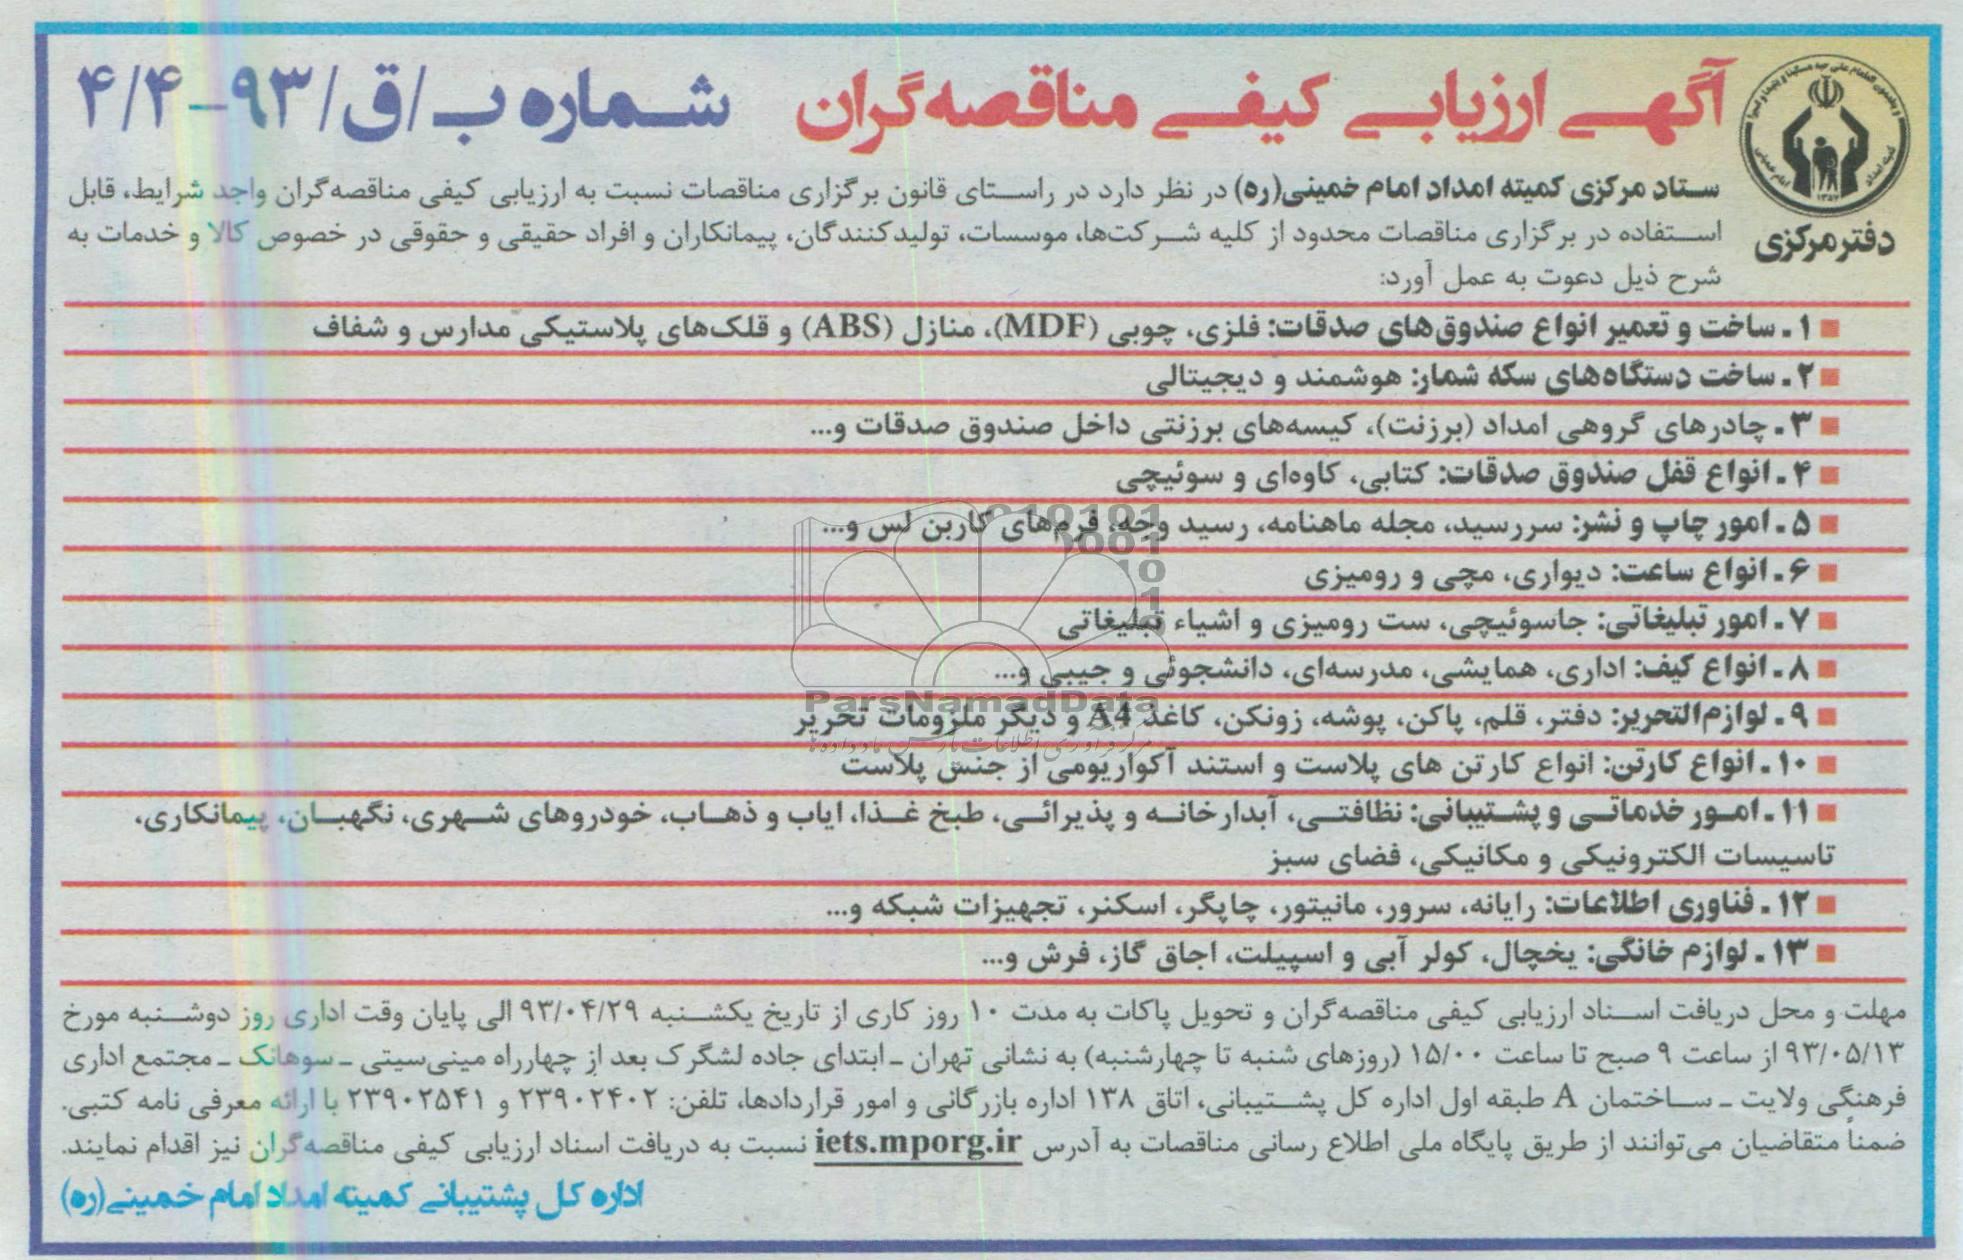 آگهی ارزیابی کیفی مناقصه‌گران شماره ب/ق/۹۳-۴/۴
دفتر مرکزی
ستاد مرکزی کمیته امداد امام خمینی(ره) در نظر دارد در راستای قانون برگزاری مناقصات نسبت به ارزیابی کیفی مناقصه‌گران واجد شرایط، قابل
استفاده در برگزاری مناقصات محدود از کلیه شرکت‌ها، موسسات، تولیدکنندگان، پیمانکاران و افراد حقیقی و حقوقی در خصوص کالا و خدمات به
شرح ذیل دعوت به عمل آورد:
۱ـ ساخت و تعمیر انواع صندوق‌های صدقات: فلزی، چوبی (MDF)، منازل (ABS) و قلک‌های پلاستیکی مدارس و شفاف
۲ـ ساخت دستگاه‌های سکه شمار: هوشمند و دیجیتالی
۳ـ چادرهای گروهی امداد (برزنت)، کیسه‌های برزنتی داخل صندوق صدقات و...
۴ـ انواع قفل صندوق صدقات: کتابی، کاوه‌ای و سوئیچی
۵ـ امور چاپ و نشر: سررسید، مجله ماهنامه، رسید وجه، فرم‌های کاربن لس و...
۶ـ انواع ساعت: دیواری، مچی و رومیزی
۷ـ امور تبلیغاتی: جاسوئیچی، ست رومیزی و اشیاء تبلیغاتی
۸ـ انواع کیف: اداری، همایشی، مدرسه‌ای، دانشجوئی و جیبی و...
ParsNamadData
۹ـ لوازم‌التحریر: دفتر، قلم، پاکن، پوشه، زونکن، کاغذ A4 و دیگر ملزومات تحریر
۱۰ـ انواع کارتن: انواع کارتن های پلاست و استند آکواریومی از جنس پلاست
۱۱ـ امور خدماتی و پشتیبانی: نظافتی، آبدارخانه و پذیرائی، طبخ غذا، ایاب و ذهاب، خودروهای شهری، نگهبان، پیمانکاری،
تاسیسات الکترونیکی و مکانیکی، فضای سبز
۱۲ـ فناوری اطلاعات: رایانه، سرور، مانیتور، چاپگر، اسکنر، تجهیزات شبکه و...
۱۳ـ لوازم خانگی: یخچال، کولر آبی و اسپیلت، اجاق گاز، فرش و...
مهلت و محل دریافت اسناد ارزیابی کیفی مناقصه‌گران و تحویل پاکات به مدت ۱۰ روز کاری از تاریخ یکشنبه ۹۳/۰۴/۲۹ الی پایان وقت اداری روز دوشنبه مورخ
۹۳/۰۵/۱۳ از ساعت ۹ صبح تا ساعت ۱۵/۰۰ (روزهای شنبه تا چهارشنبه) به نشانی تهران ـ ابتدای جاده لشگرک بعد از چهارراه مینی‌سیتی ـ سوهانک ـ مجتمع اداری
فرهنگی ولایت ـ ساختمان A طبقه اول اداره کل پشتیبانی، اتاق ۱۳۸ اداره بازرگانی و امور قراردادها، تلفن: ۲۳۹۰۲۴۰۲ و ۲۳۹۰۲۵۴۱ با ارائه معرفی نامه کتبی.
ضمناً متقاضیان می‌توانند از طریق پایگاه ملی اطلاع رسانی مناقصات به آدرس iets.mporg.ir نسبت به دریافت اسناد ارزیابی کیفی مناقصه‌گران نیز اقدام نمایند.
اداره کل پشتیبانی کمیته امداد امام خمینی(ره)